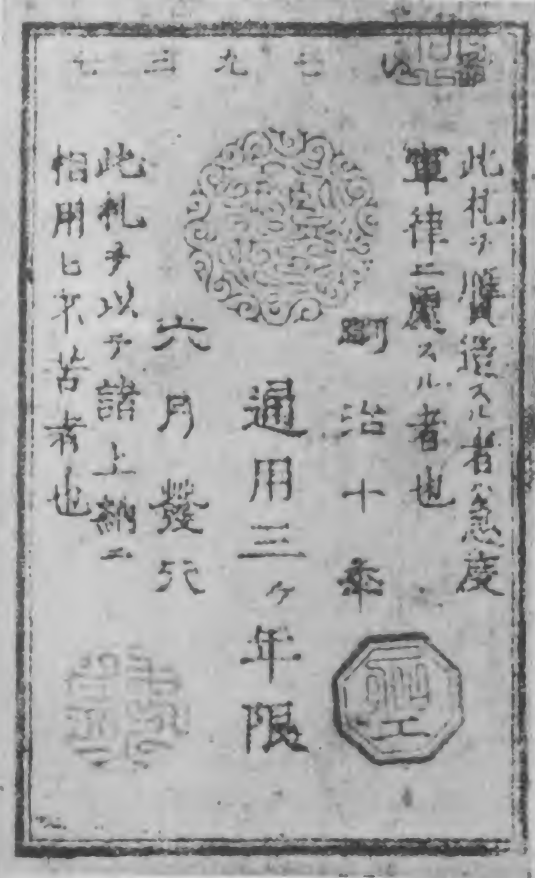 七九三七
此札ヲ贋造スル者ハ急度
軍律ニ處スル者也
明治十年
通用三ヶ年限
六月發行
此札ヲ以テ諸上納ニ
相用ヒ不苦者也